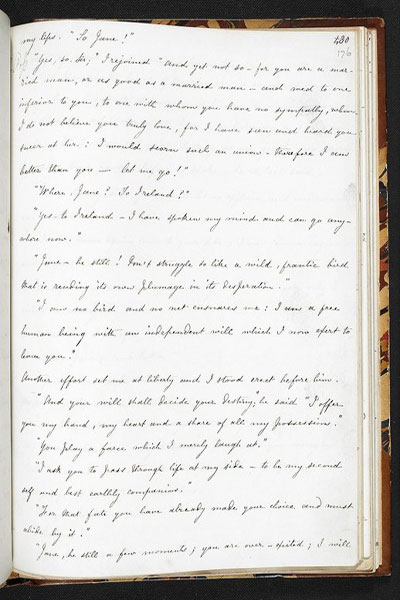 430
176
my lips. "So Jane!"
"Yes, so, Sir," I rejoined "and yet not so - for you are a mar-
ried man, or as good as a married man - and wed to one
inferior to you, to one with whom you have no sympathy, whom
I do not believe you truly love, for I have seen and heard you
sneer at her: I would scorn such an union - therefore I am
better than you — let me go!"
"Where, Jane? To Ireland?"
"Yes - to Ireland - I have spoken my mind and can go any-
where now."
"Jane - be still! Don't struggle so like a wild, frantic bird
that is rending its own plumage in its desperation."
"I am no bird and no net ensnares me: I am a free
human being with an independent will which I now exert to
leave you."
Another effort set me at liberty and I stood erect before him.
"And your will shall decide your destiny," he said "I offer
you my hand, my heart and a share of all my possessions."
"You play a farce which I merely laugh at."
"I ask you to pass through life at my side - to be my second
self and best earthly companion."
"For that fate you have already made your choice and must
abide by it."
"Jane, be still a few moments; you are over-excited; I will